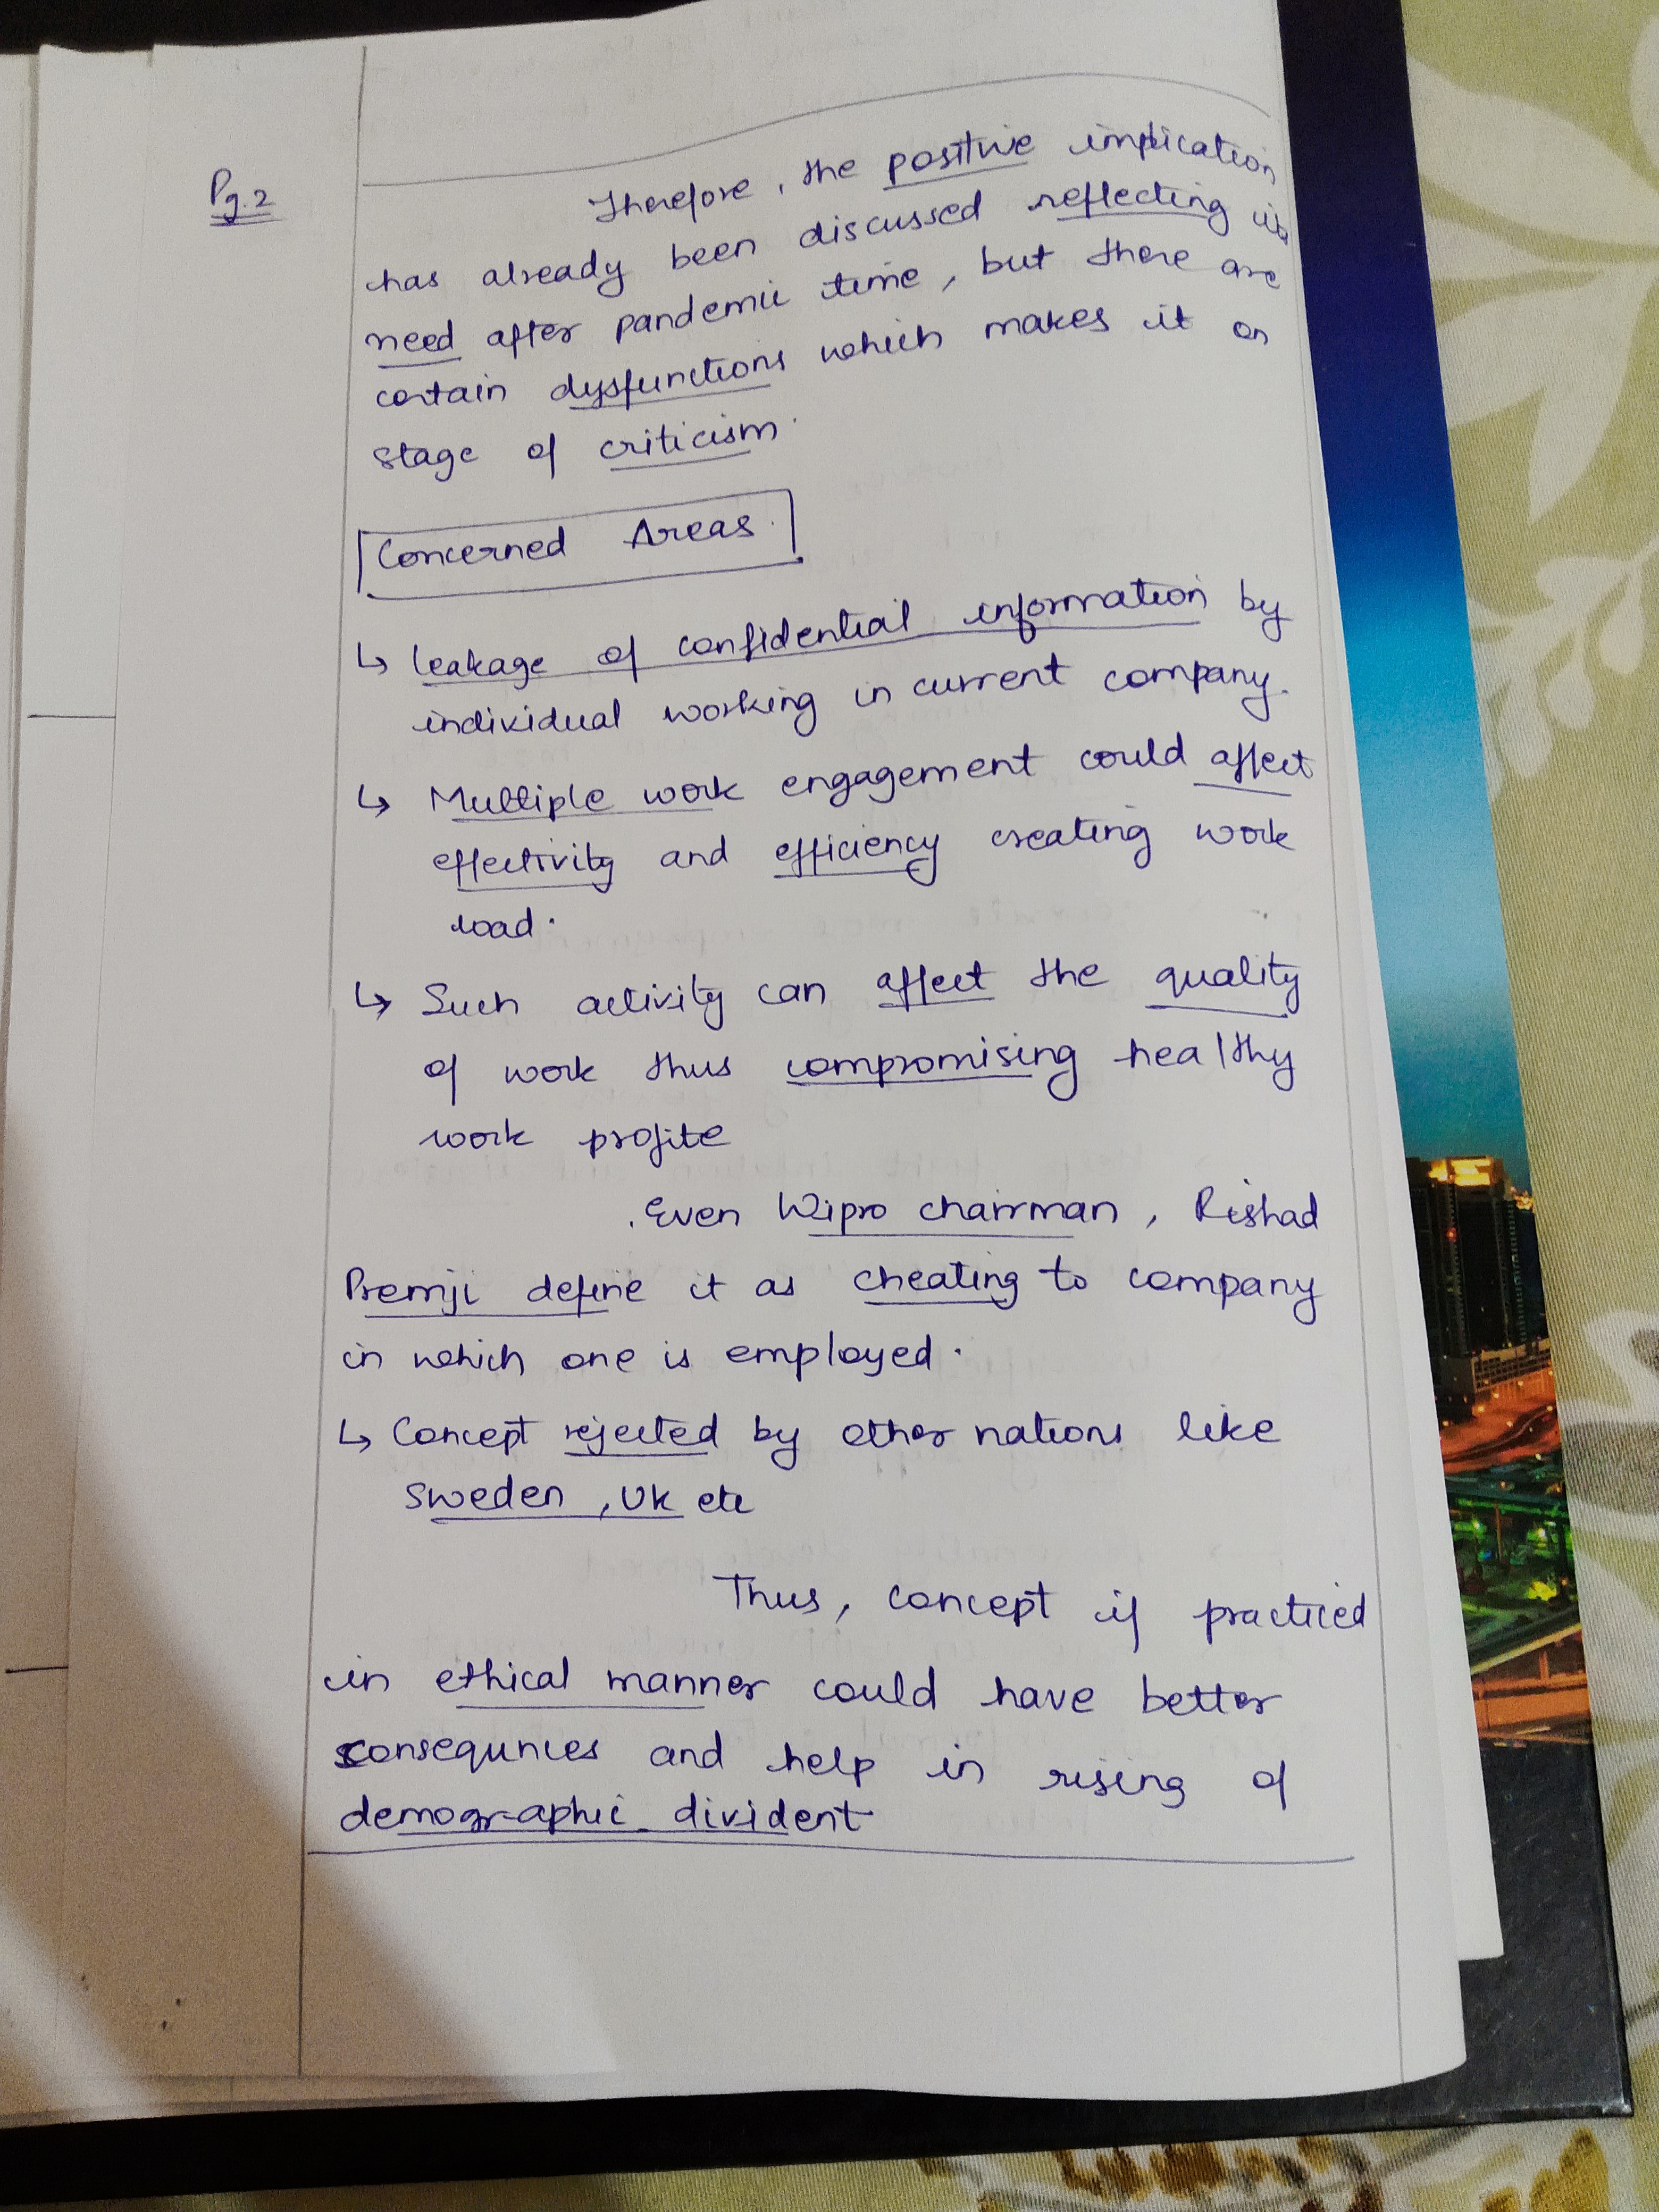 Pg.2
Therefore, the positive implication
has already been discussed reflecting its
need after pandemic time, but there are
certain dysfunctions which makes it on
stage of criticism.
Concerned Areas.
↳ leakage of confidential information by
individual working in current company.
↳ Multiple work engagement could affect
effectivity and efficiency creating work
load.
↳ Such activity can affect the quality
of work thus compromising healthy
work profite
Even Wipro chairman, Rishad
Premji define it as cheating to company
in which one is employed.
↳ Concept rejected by other nations like
Sweden, UK etc
Thus, concept if practiced
in ethical manner could have better
consequnces and help in rising of
demographic divident